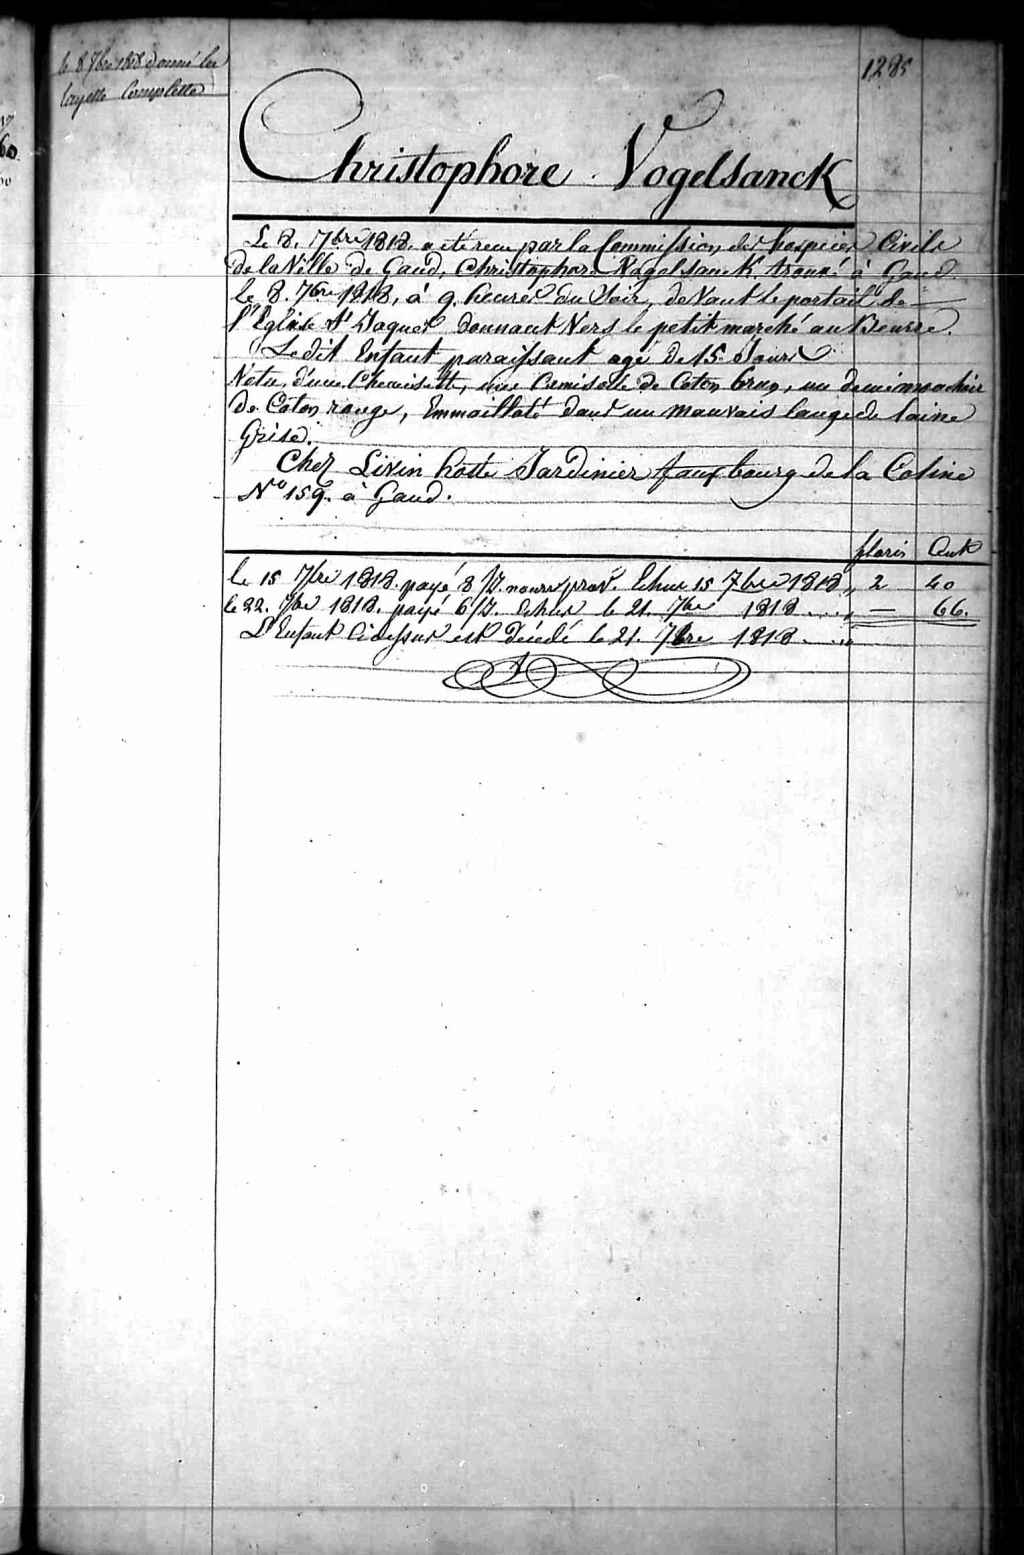 le 8 7bre 1818 donné la
layette Complette
1285
Christophore Vogelsanck
Le 8. 7bre 1818. a été recu par la Commission des hospices Civils
de la Ville de Gand, Christophore Vogelsanck, trouvé à Gand
le 8. 7bre 1818, à 9. heures du Soir, devant le portail de
l'Eglise St Jaques donnant Vers le petit marché au Beurre.
Ledit Enfant paraissant agé de 15. Jours
Vetu, d'une Chemisette, une Camisole de Coton brun, un demi mouchoir
de Coton rouge, Emmailloté dans un mauvais lange de laine
Grise.
Chez Livin hotte Jardinier fauxbourg de la Coline
No 159. à Gand.
floris Cent
le 15 7bre 1818. payé 8 J. nourr prov. Echus 15 7bre 1818 „ 2 40
le 22. 7bre 1818. payé 6 J. Echus le 21. 7bre 1818 .... „ — 66.
L'Enfant Cidessus est Décédé le 21. 7bre 1818. ...